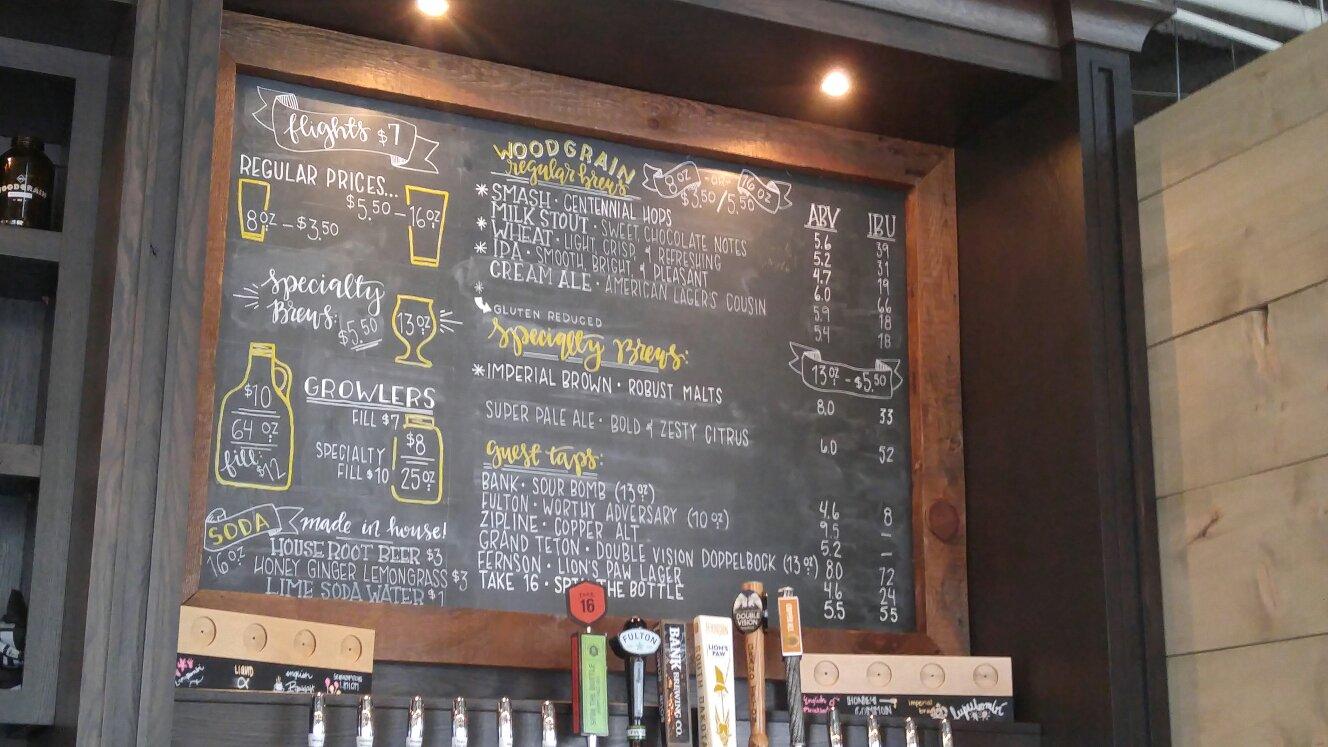 flights $7
REGULAR PRICES...
8oz – $3.50
$5.50 – 16oz
specialty
Brews:
$5.50
13oz
GROWLERS
$10
64 oz
fill: $12
FILL $7
SPECIALTY
FILL $10
$8
25oz
SODA made in house!
16oz
HOUSE ROOT BEER $3
HONEY GINGER LEMONGRASS $3
LIME SODA WATER $1
WOODGRAIN
regular brews
8oz -OR- 16oz
$3.50/5.50
ABV IBU
* SMASH · CENTENNIAL HOPS
MILK STOUT · SWEET, CHOCOLATE NOTES
* WHEAT · LIGHT, CRISP, & REFRESHING
* IPA · SMOOTH, BRIGHT, & PLEASANT
CREAM ALE · AMERICAN LAGER'S COUSIN
5.6 39
5.2 31
4.7 19
6.0 66
5.9 18
5.4 18
*
GLUTEN REDUCED
Specialty Brews:
13oz – $5.50
* IMPERIAL BROWN · ROBUST MALTS
8.0 33
SUPER PALE ALE · BOLD & ZESTY CITRUS
6.0 52
guest taps:
BANK · SOUR BOMB (13oz)
FULTON · WORTHY ADVERSARY (10oz)
ZIPLINE · COPPER ALT
GRAND TETON · DOUBLE VISION DOPPELBOCK (13oz)
FERNSON · LION'S PAW LAGER
TAKE 16 · THE BOTTLE
4.6 8
9.5 –
5.2 –
8.0 72
4.6 24
5.5 55
WOODGRAIN
16
FULTON
BANK BREWING CO.
LION'S PAW
DOUBLE VISION